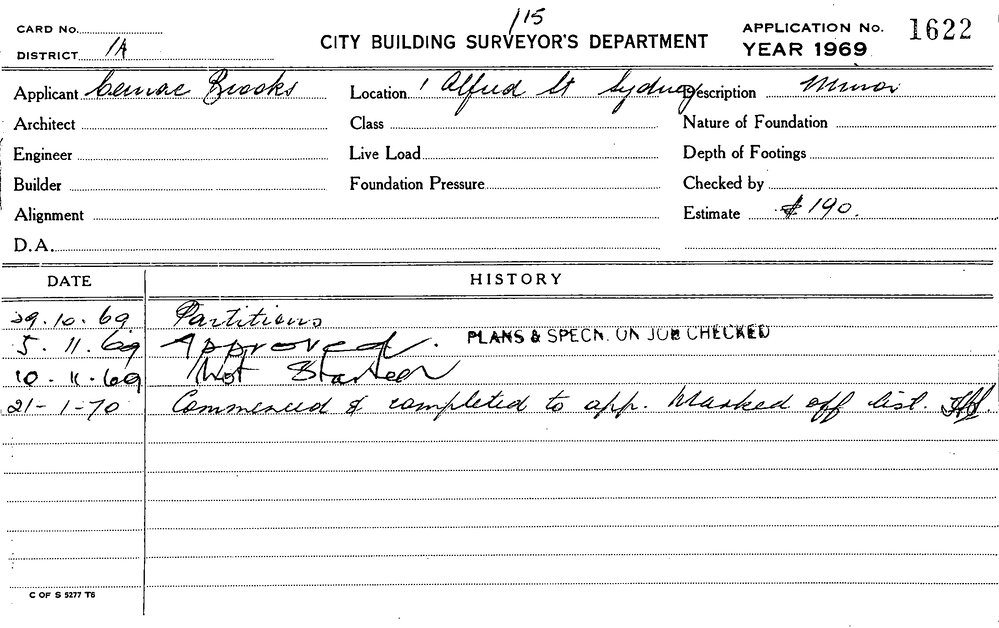 1/15
CARD No.
APPLICATION No. 1622
CITY BUILDING SURVEYOR'S DEPARTMENT
DISTRICT 1A
YEAR 1969
Applicant Brooks Location 1 Alfred St Sydney Description Minor
Architect Class Nature of Foundation
Engineer Live Load Depth of Footings
Builder Foundation Pressure Checked by
Alignment Estimate $190.
D.A.
DATE HISTORY
29.10.69 Partitions
5.11.69 Approved. PLANS & SPECN. ON JOB CHECKED
10.11.69 Not Started
21-1-70 Commenced & completed to app. Marked off list.
C OF S 5277 T6